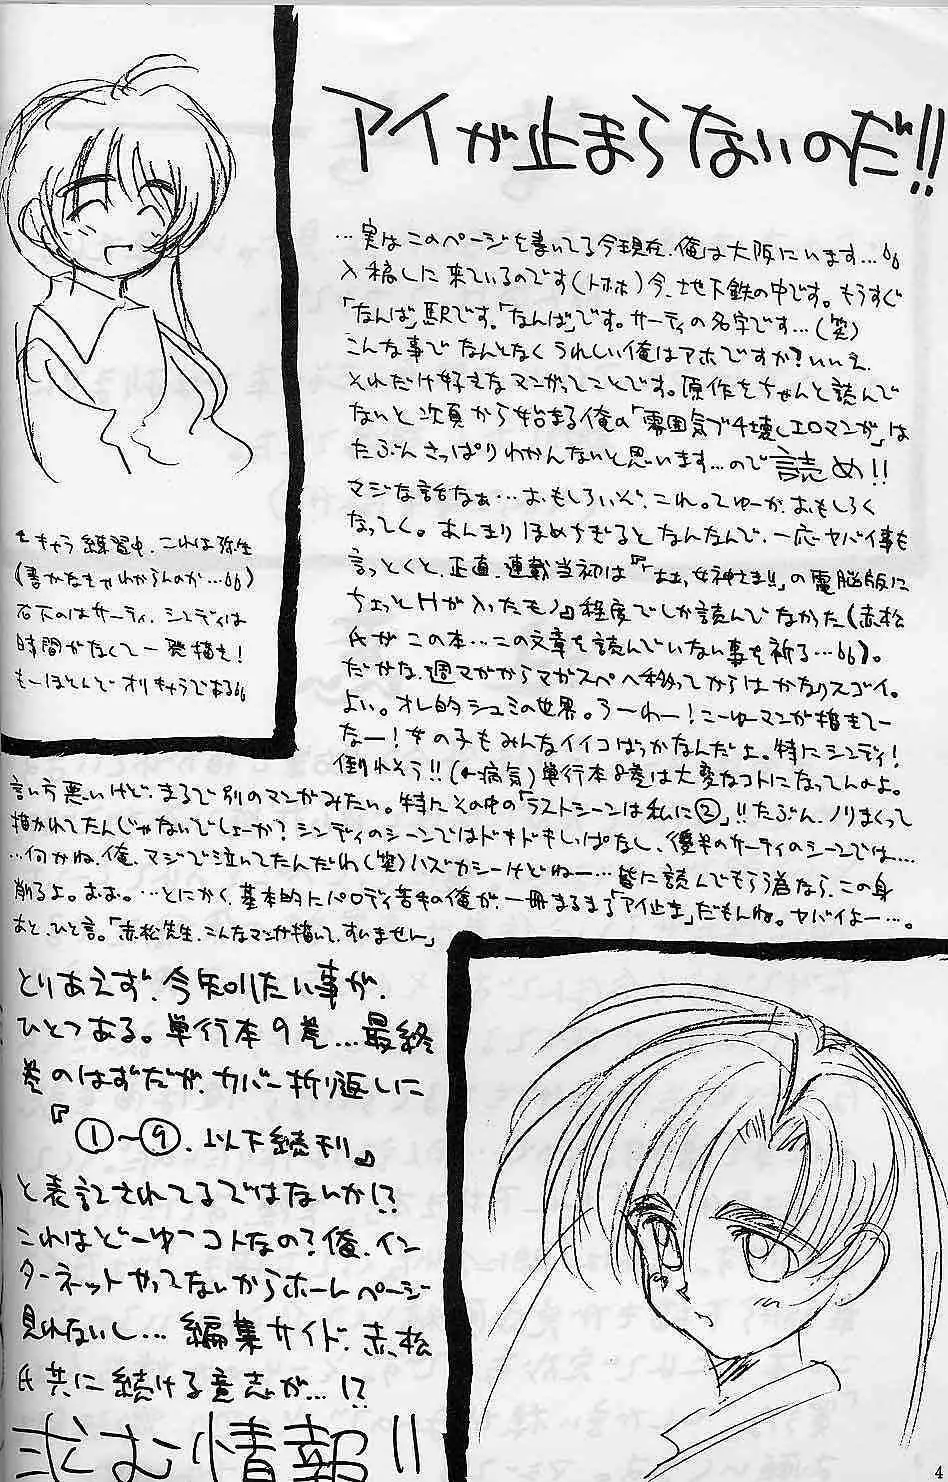 アイが止まらないのだ!!
…実はこのページを書いてる今現在、俺は大阪にいます…
入稿しに来ているのです(トホホ)今、地下鉄の中です。もうすぐ
「なんば」駅です。「なんば」です。サーティの名字です…(笑)
こんな事でなんとなくうれしい俺はアホですか?いいえ、
それだけ好きなマンガってことです。原作をちゃんと読んで
ないと次頁から始まる俺の「雰囲気ブチ壊しエロマンガ」は
たぶんさっぱりわかんないと思います…ので読め!!
マジな話なぁ…おもしろいぞ、これ。てゆーか、おもしろく
なってく。あんまりほめちぎるとなんなんで、一応ヤバイ事も
言っとくと、正直、連載当初は『「ああっ女神さまっ!!」の電脳版に
ちょっとHが入ったモノ』程度でしか読んでなかった(赤松
氏がこの本…この文章を読んでいない事を祈る…)。
だがな、週マガからマガスペへ移ってからはかなりスゴイ。
よい。オレ的シュミの世界。うーわー!こーゆーマンガ描きてー
なー!女の子もみんなイイコばっかなんだよ。特にシンディ!
倒れそう!!(←病気)単行本8巻は大変なコトになってんのよ。
言い方悪いけど、まるで別のマンガみたい。特にその中の「ラストシーンは私に②」!!たぶん、ノリまくって
描かれてたんじゃないでしょーか?シンディのシーンではドキドキしっぱなし、後半のサーティのシーンでは…
…何かね、俺、マジで泣いてたんだわ(笑)ハズカシーけどねー…皆に読んでもらう為なら、この身
削るよ。おお。…とにかく、基本的にパロディ苦手の俺が、一冊まるまる「アイ止ま」だもんね。ヤバイよー…。
あと、ひと言。「赤松先生、こんなマンガ描いて、すいません」
←キャラ練習中、これは弥生
(書かなきゃわからんのか…)
右下のはサーティ、シンディは
時間がなくて一発描き!
もーほとんどオリキャラである
とりあえず、今知りたい事が、
ひとつある。単行本9巻…最終
巻のはずだが、カバー折り返しに
『①〜⑨、以下続刊』
と表記されてるではないか!?
これはどーゆーコトなの?俺、イン
ターネットやってないからホームページ
見れないし…編集サイド、赤松
氏共に続ける意志が…!?
求む情報!!
4